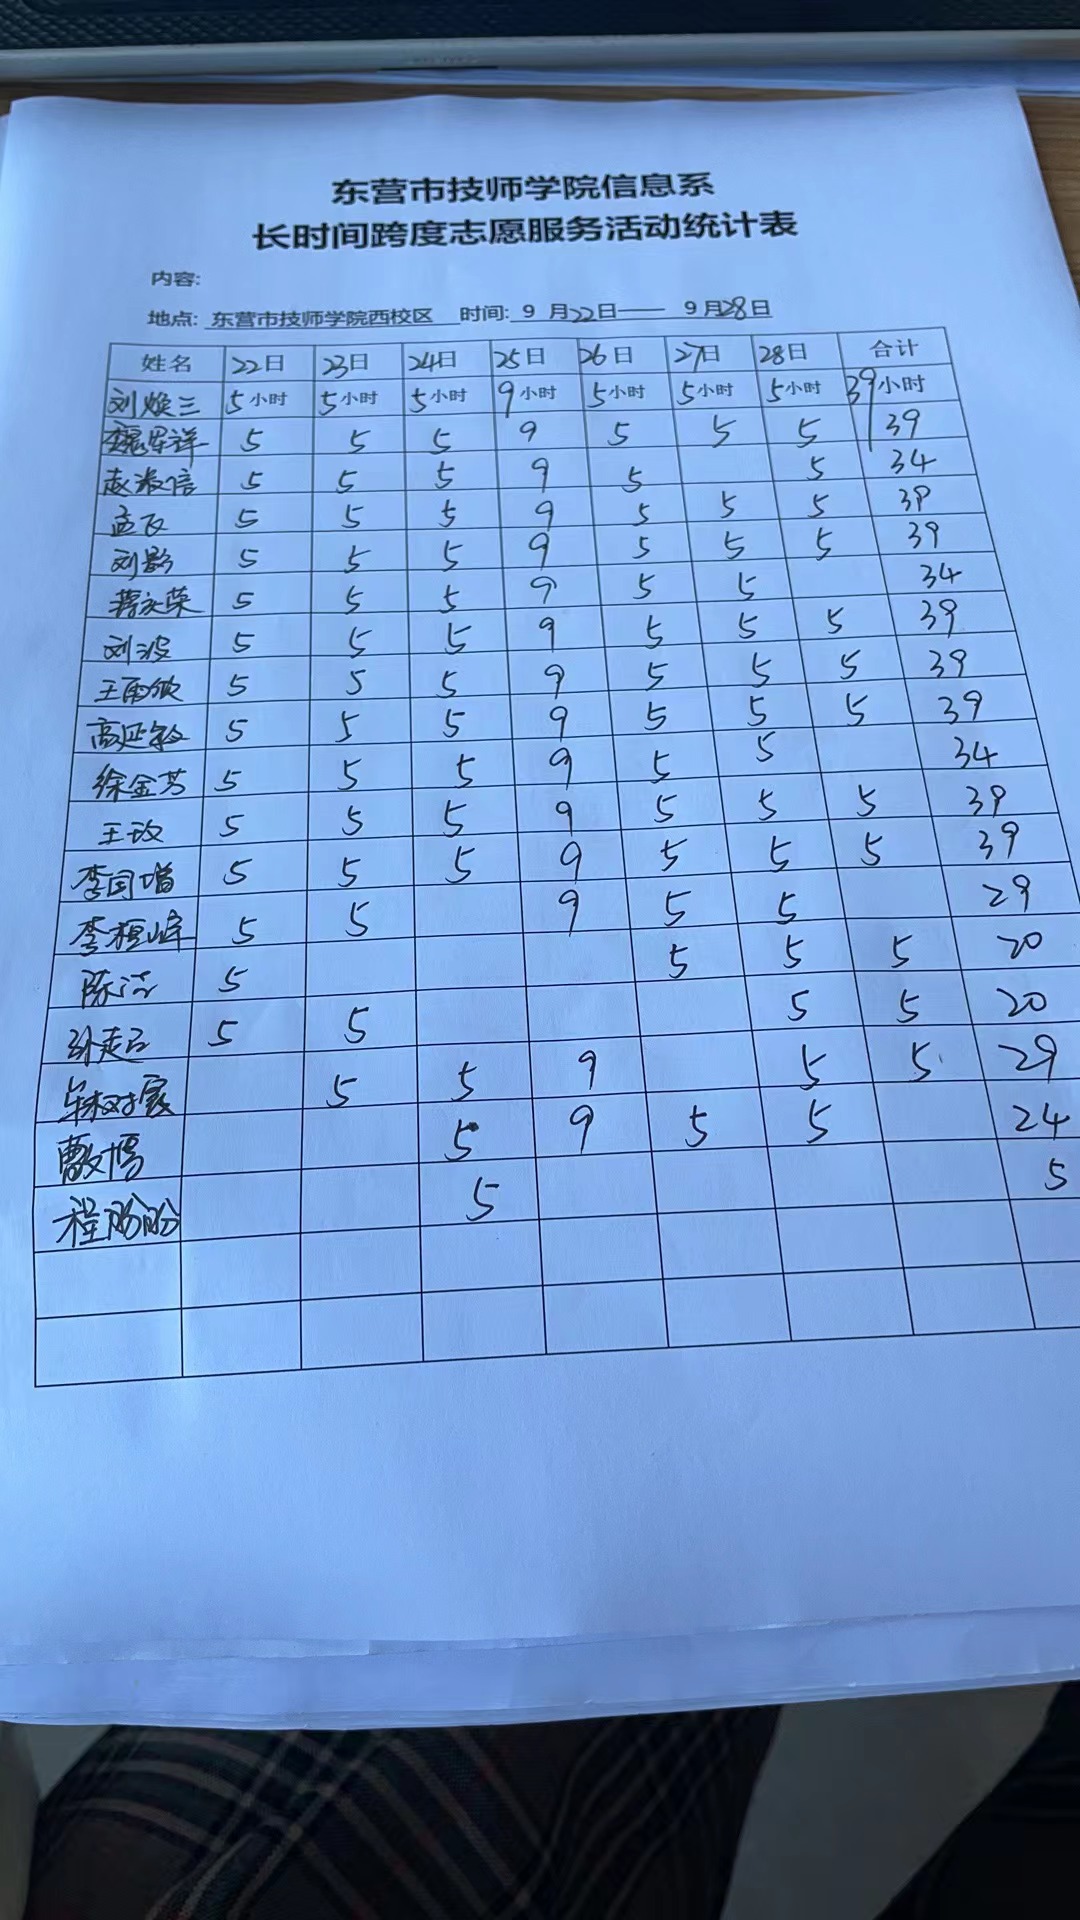 东营市技师学院信息系
长时间跨度志愿服务活动统计表
内容:
地点: 东营市技师学院西校区 时间: 9 月22日—— 9月28日
姓名 22日 23日 24日 25日 26日 27日 28日 合计
刘焕三 5小时 5小时 5小时 9小时 5小时 5小时 5小时 39小时
5 5 5 9 5 5 5 39
赵淑信 5 5 5 9 5 5 34
孟飞 5 5 5 9 5 5 5 39
刘影 5 5 5 9 5 5 5 39
蒋文荣 5 5 5 9 5 5 34
刘波 5 5 5 9 5 5 5 39
王雨欣 5 5 5 9 5 5 5 39
高延 5 5 5 9 5 5 5 39
徐金芳 5 5 5 9 5 5 34
王玫 5 5 5 9 5 5 5 39
李国增 5 5 5 9 5 5 5 39
李桓峰 5 5 9 5 5 29
陈洁 5 5 5 5 20
孙 5 5 5 5 20
5 5 9 5 5 29
5 9 5 5 24
程盼盼 5 5